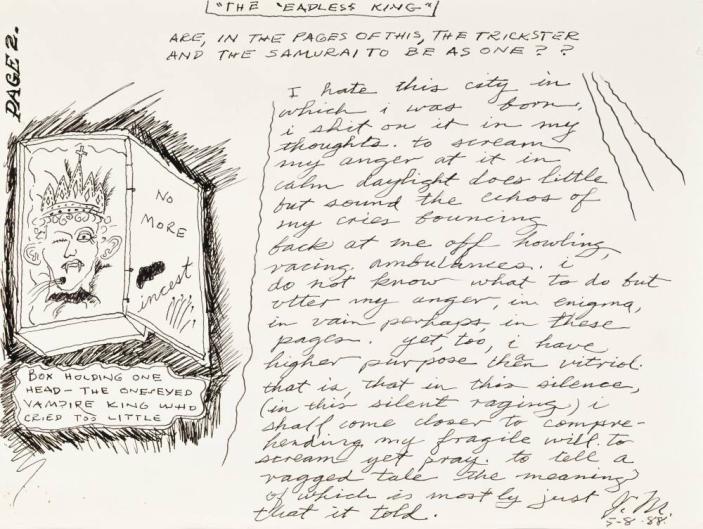 "THE 'EADLESS KING"
PAGE 2.
ARE, IN THE PAGES OF THIS, THE TRICKSTER
AND THE SAMURAI TO BE AS ONE? ?
NO
MORE
incest
BOX HOLDING ONE
HEAD – THE ONE-EYED
VAMPIRE KING WHO
CRIED TOO LITTLE
I hate this city in
which i was born,
i shit on it in my
thoughts. to scream
my anger at it in
calm daylight does little
but sound the echos of
my cries bouncing
back at me off howling,
racing ambulances. i
do not know what to do but
utter my anger, in enigma,
in vain perhaps, in these
pages. yet, too, i have
higher purpose then vitriol.
that is, that in this silence,
(in this silent raging,) i
shall come closer to compre-
hending my fragile will. to
scream yet pray. to tell a
ragged tale the meaning
of which is mostly just
that it told.
J. M.
5-8-88.